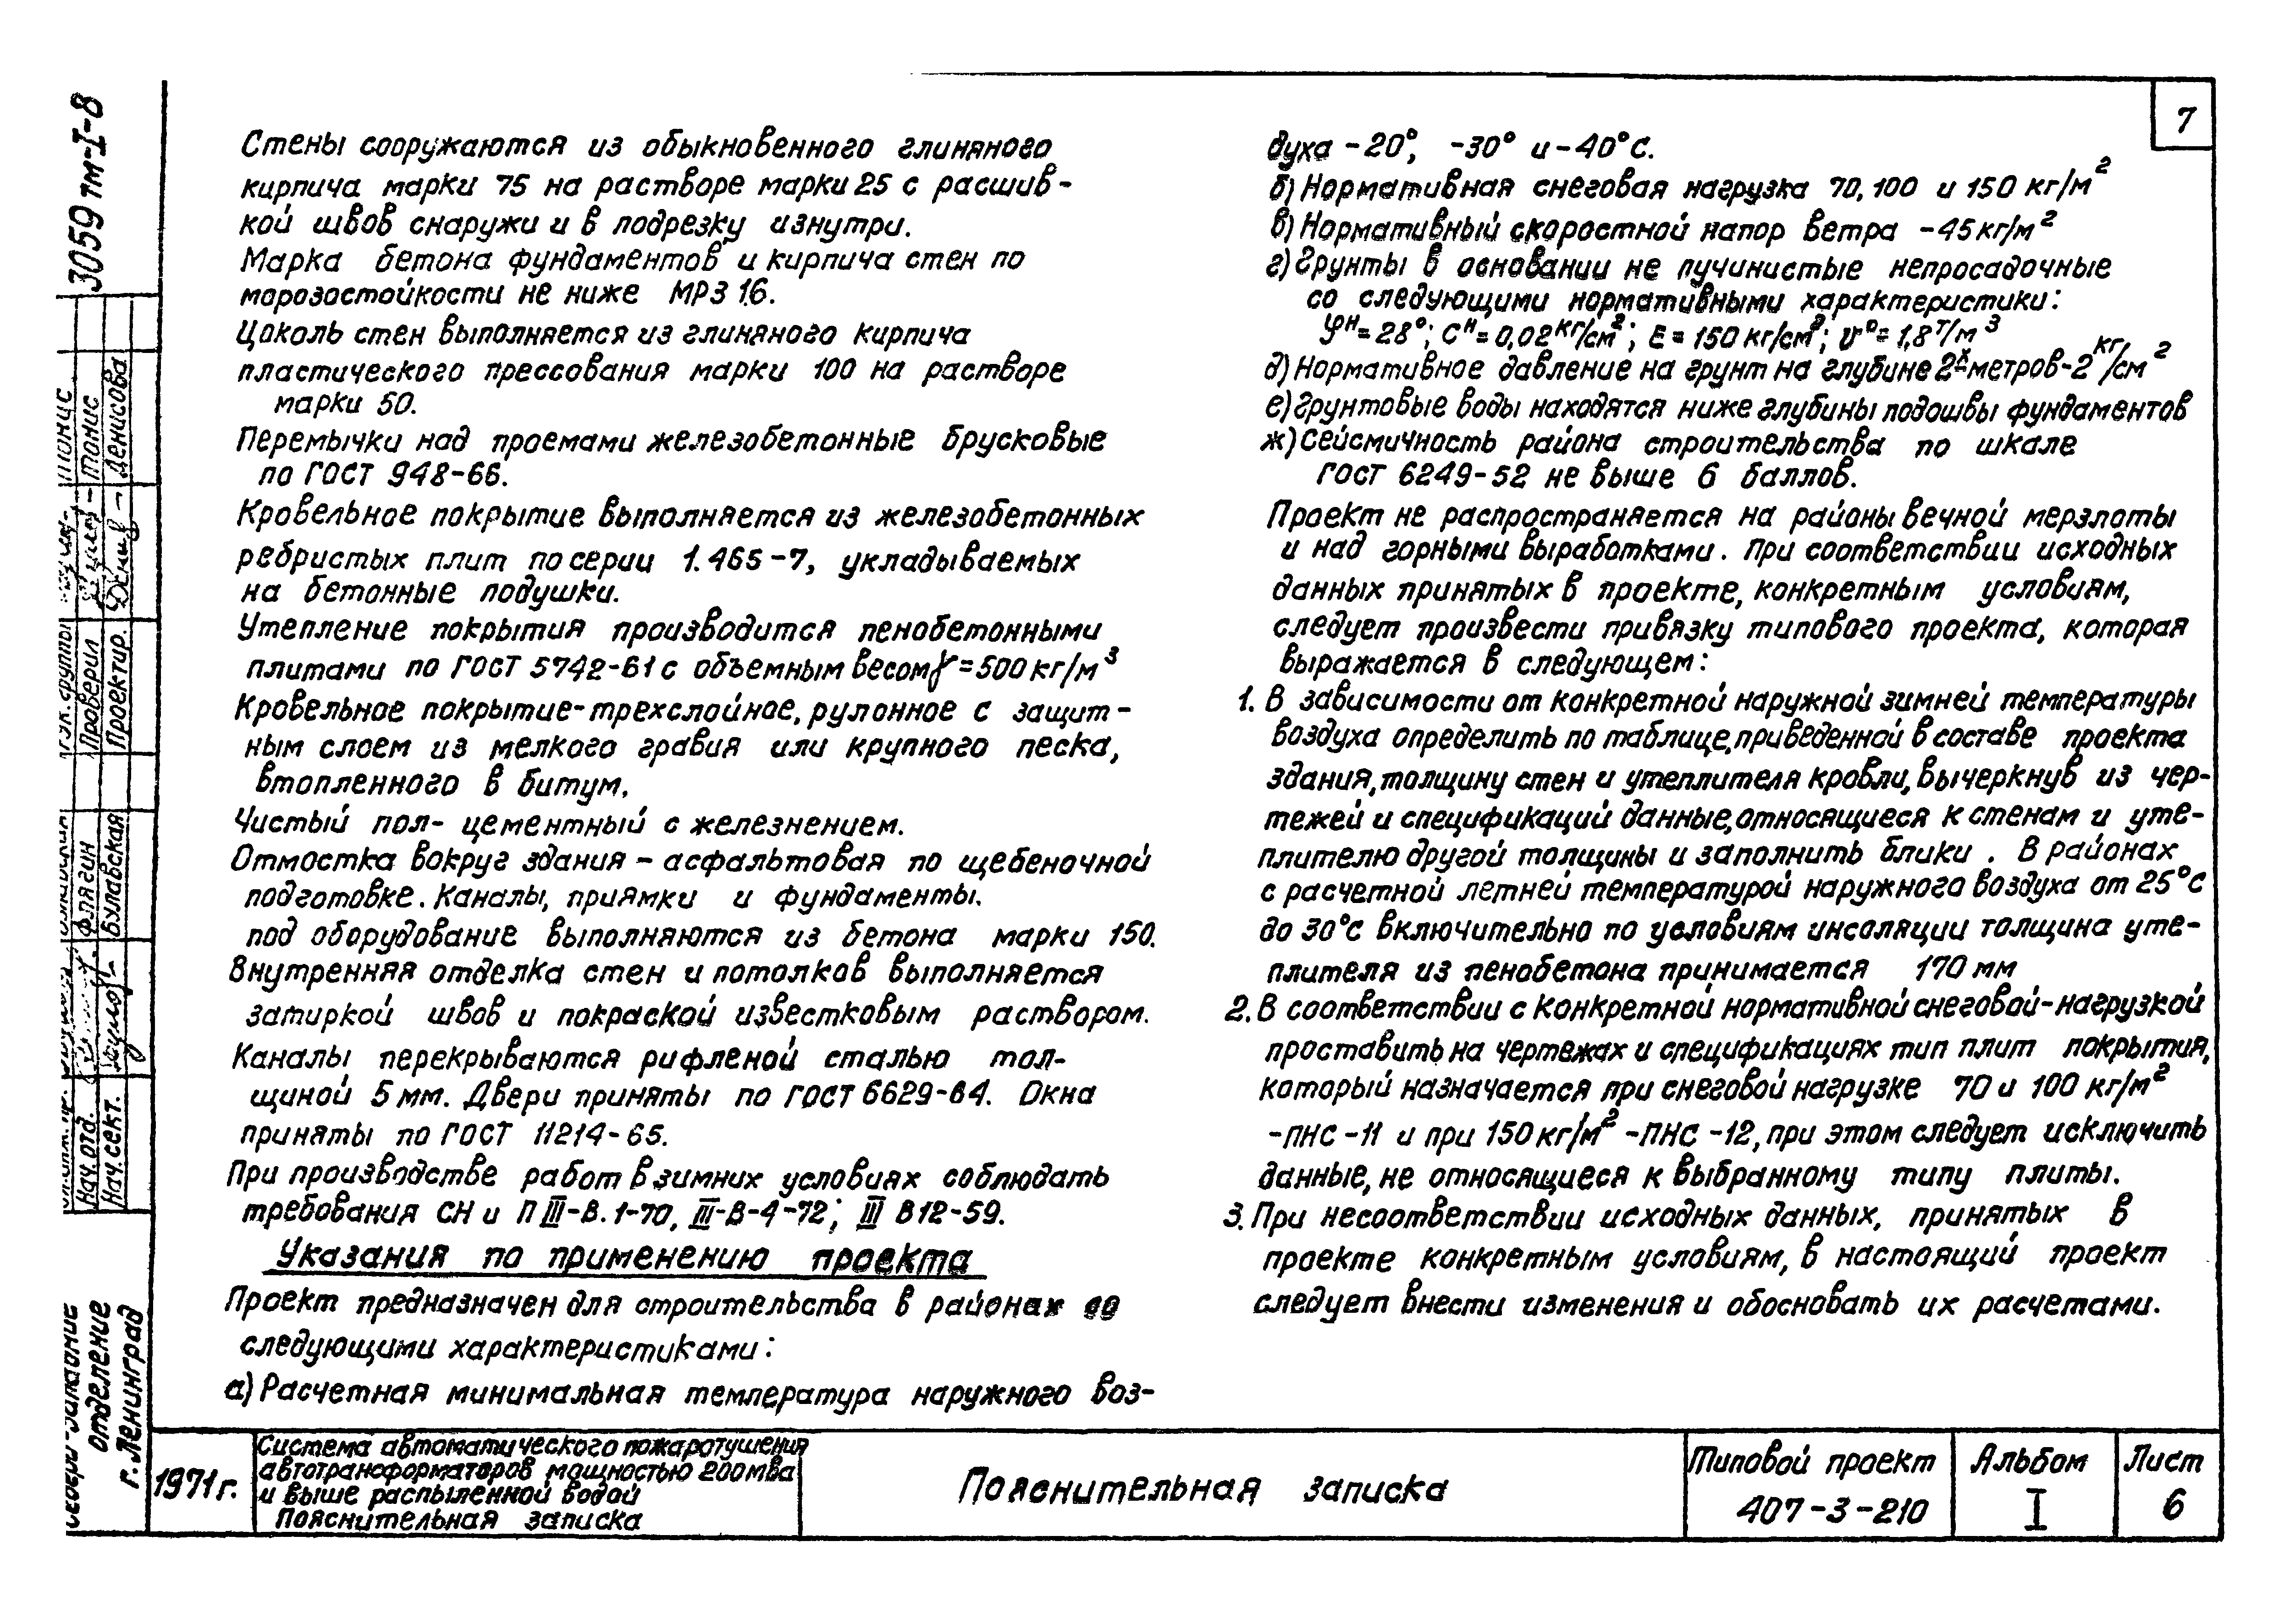 7
Стены сооружаются из обыкновенного глиняного
кирпича марки 75 на растворе марки 25 с расшив-
кой швов снаружи и в подрезку изнутри.
Марка бетона фундаментов и кирпича стен по
морозостойкости не ниже МРЗ 16.
Цоколь стен выполняется из глиняного кирпича
пластического прессования марки 100 на растворе
марки 50.
Перемычки над проемами железобетонные брусковые
по ГОСТ 948-66.
Кровельное покрытие выполняется из железобетонных
ребристых плит по серии 1.465-7, укладываемых
на бетонные подушки.
Утепление покрытия производится пенобетонными
плитами по ГОСТ 5742-61 с объемным весом γ=500 кг/м³
Кровельное покрытие-трехслойное, рулонное с защит-
ным слоем из мелкого гравия или крупного песка,
втопленного в битум.
Чистый пол- цементный с железнением.
Отмостка вокруг здания - асфальтовая по щебеночной
подготовке. Каналы, приямки и фундаменты.
под оборудование выполняются из бетона марки 150.
Внутренняя отделка стен и потолков выполняется
затиркой швов и покраской известковым раствором.
Каналы перекрываются рифленой сталью тол-
щиной 5 мм. Двери приняты по ГОСТ 6629-64. Окна
приняты по ГОСТ 11214-65.
При производстве работ в зимних условиях соблюдать
требования СН и П III-В.1-70, III-В-4-72; III В12-59.
Указания по применению проекта
Проект предназначен для строительства в районах со
следующими характеристиками:
а) Расчетная минимальная температура наружного воз-
духа -20°, -30° и -40°С.
б) Нормативная снеговая нагрузка 70, 100 и 150 кг/м²
в) Нормативный скоростной напор ветра -45 кг/м²
г) Грунты в основании не пучинистые непросадочные
со следующими нормативными характеристики:
φн=28°; Сн=0,02 кг/см²; Е=150 кг/см²; υ°=1,8 т/м³
д) Нормативное давление на грунт на глубине 2х метров-2 кг/см²
е) Грунтовые воды находятся ниже глубины подошвы фундаментов
ж) Сейсмичность района строительства по шкале
ГОСТ 6249-52 не выше 6 баллов.
Проект не распространяется на районы вечной мерзлоты
и над горными выработками. При соответствии исходных
данных принятых в проекте, конкретным условиям,
следует произвести привязку типового проекта, которая
выражается в следующем:
1. В зависимости от конкретной наружной зимней температуры
воздуха определить по таблице, приведенной в составе проекта
здания, толщину стен и утеплителя кровли, вычеркнув из чер-
тежей и спецификаций данные, относящиеся к стенам и уте-
плителю другой толщины и заполнить блики. В районах
с расчетной летней температурой наружного воздуха от 25°С
до 30°С включительно по условиям инсоляции толщина уте-
плителя из пенобетона принимается 170 мм
2. В соответствии с конкретной нормативной снеговой-нагрузкой
проставить на чертежах и спецификациях тип плит покрытия,
который назначается при снеговой нагрузке 70 и 100 кг/м²
-ПНС-11 и при 150 кг/м² -ПНС-12, при этом следует исключить
данные, не относящиеся к выбранному типу плиты.
3. При несоответствии исходных данных, принятых в
проекте конкретным условиям, в настоящий проект
следует внести изменения и обосновать их расчетами.
3059тм-I-8
Танис
Денисова
Проверил
Проектир.
Флягин
Булавская
Нач.отд.
Нач.сект.
отделение
г. Ленинград
1971г.
Система автоматического пожаротушения
автотрансформаторов мощностью 200мва
и выше распыленной водой
Пояснительная записка
Пояснительная записка
Типовой проект
407-3-210
Альбом
I
Лист
6